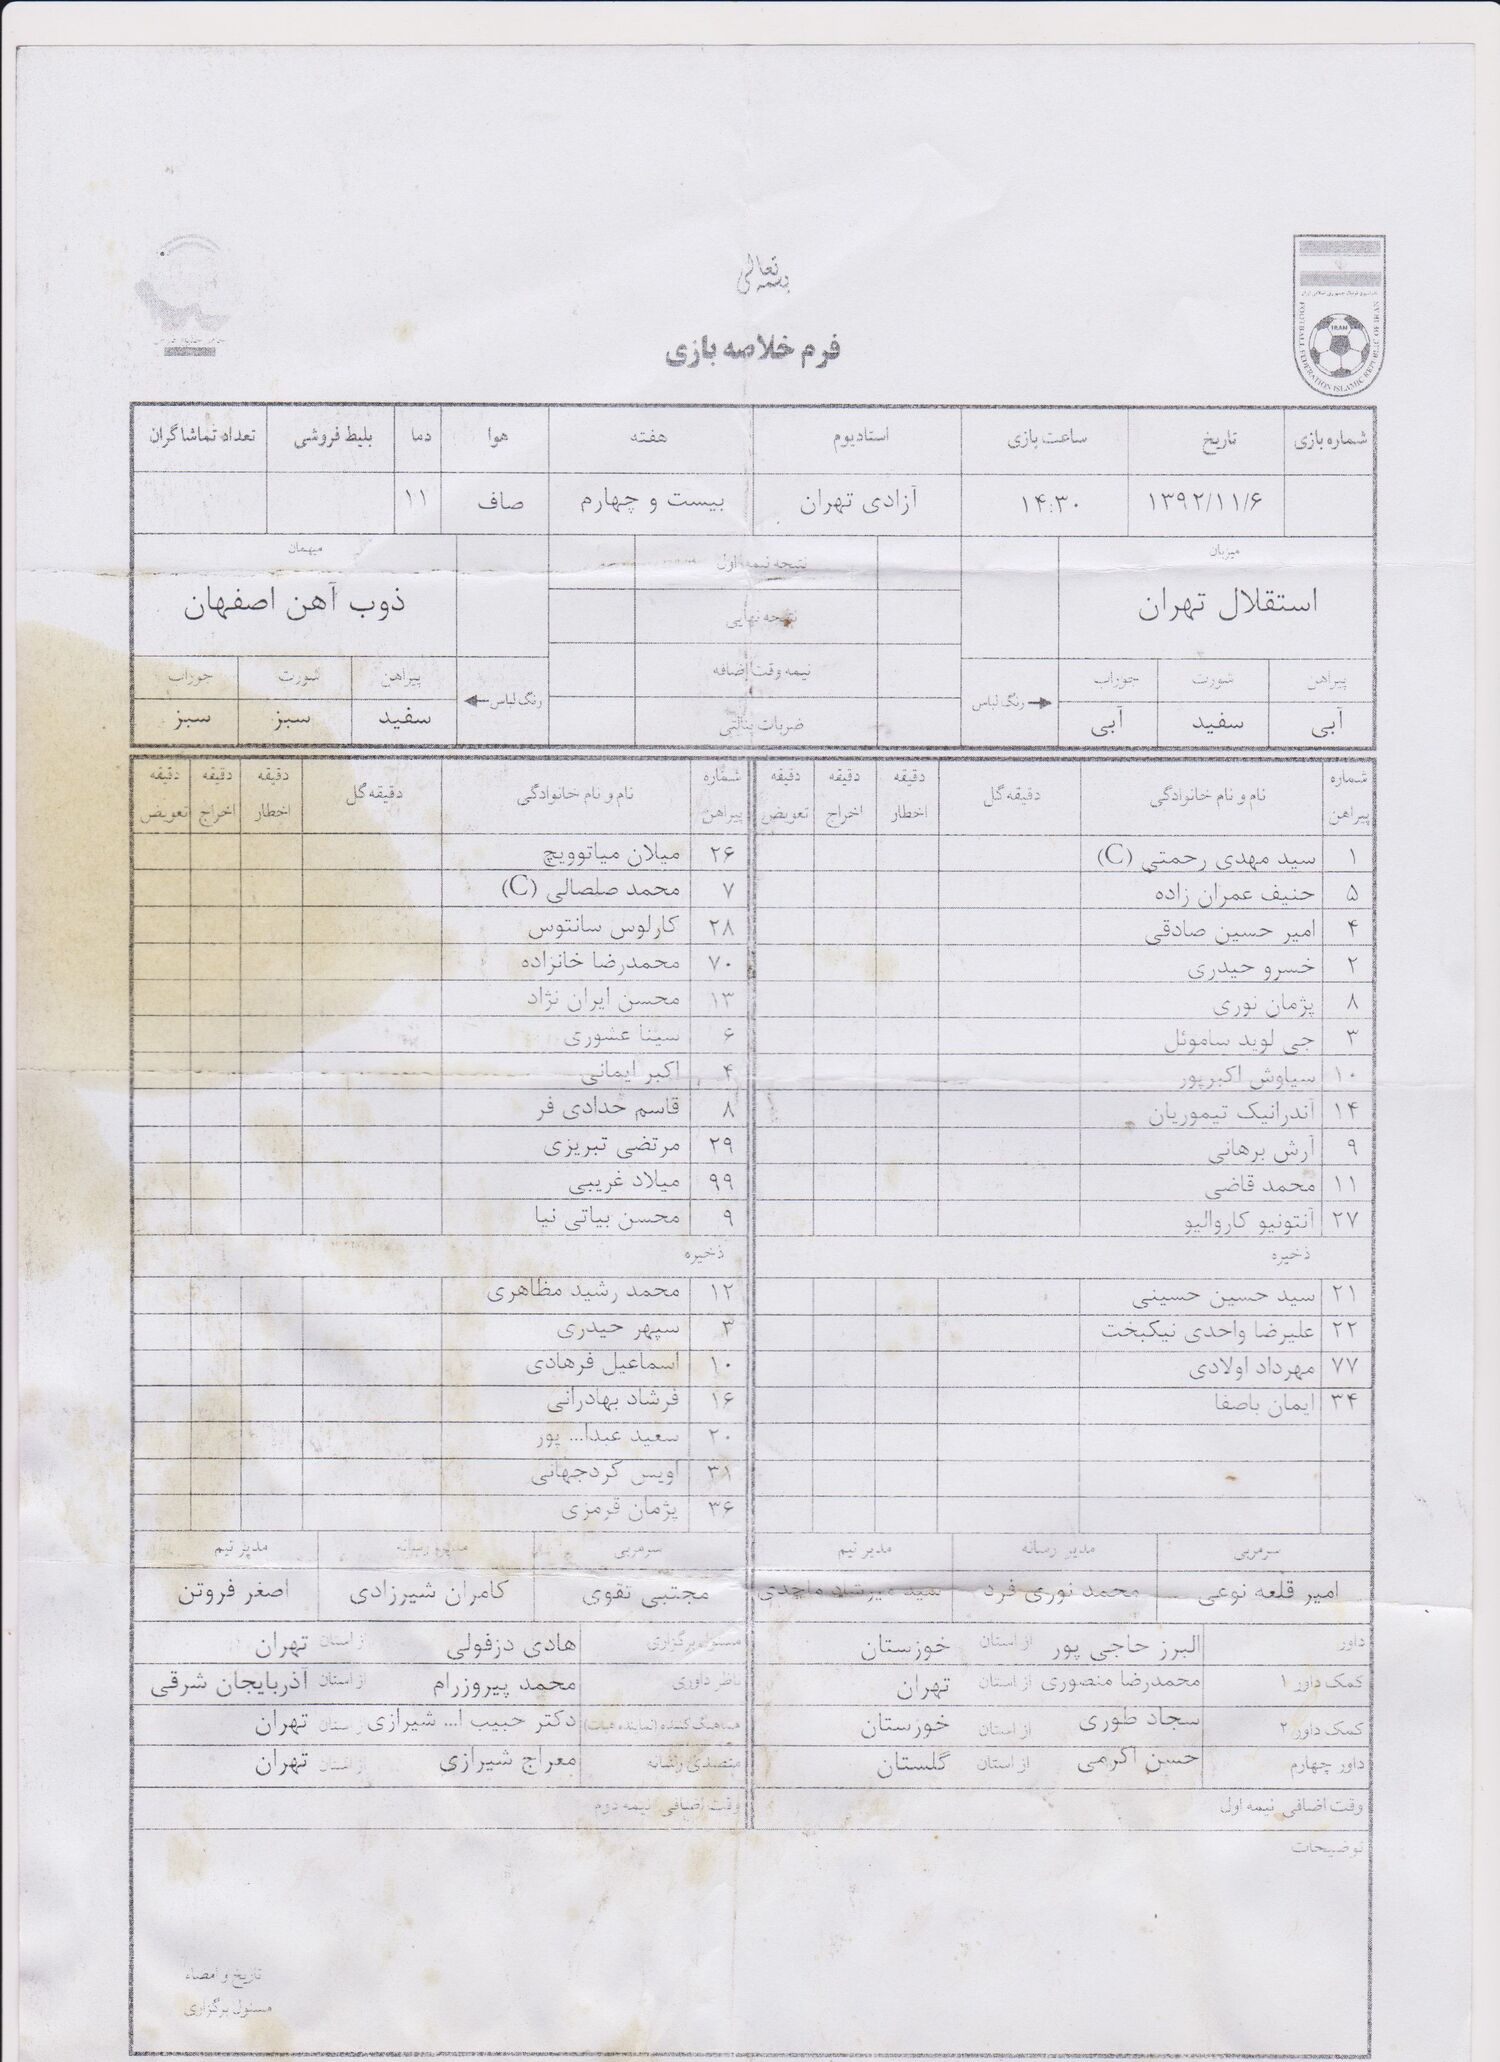 بسمه تعالی
فرم خلاصه بازی
IRAN
FOOTBALL FEDERATION ISLAMIC REPUBLIC OF IRAN
شماره بازی تاریخ ساعت بازی استادیوم هفته هوا دما بلیط فروشی تعداد تماشاگران
۱۳۹۲/۱۱/۶ ۱۴:۳۰ آزادی تهران بیست و چهارم صاف ۱۱
میزبان نتیجه نیمه اول میهمان
استقلال تهران نتیجه نهایی ذوب آهن اصفهان
پیراهن شورت جوراب رنگ لباس نیمه وقت اضافه رنگ لباس پیراهن شورت جوراب
آبی سفید آبی ضربات پنالتی سفید سبز سبز
شماره پیراهن نام و نام خانوادگی دقیقه گل دقیقه اخطار دقیقه اخراج دقیقه تعویض شماره پیراهن نام و نام خانوادگی دقیقه گل دقیقه اخطار دقیقه اخراج دقیقه تعویض
۱ سید مهدی رحمتی (C) ۲۶ میلان میاتوویچ
۵ حنیف عمران زاده ۷ محمد صلصالی (C)
۴ امیر حسین صادقی ۲۸ کارلوس سانتوس
۲ خسرو حیدری ۷۰ محمدرضا خانزاده
۸ پژمان نوری ۱۳ محسن ایران نژاد
۳ جی لوید ساموئل ۶ سینا عشوری
۱۰ سیاوش اکبرپور ۴ اکبر ایمانی
۱۴ آندرانیک تیموریان ۸ قاسم حدادی فر
۹ آرش برهانی ۲۹ مرتضی تبریزی
۱۱ محمد قاضی ۹۹ میلاد غریبی
۲۷ آنتونیو کاروالیو ۹ محسن بیاتی نیا
ذخیره ذخیره
۲۱ سید حسین حسینی ۱۲ محمد رشید مظاهری
۲۲ علیرضا واحدی نیکبخت ۳ سپهر حیدری
۷۷ مهرداد اولادی ۱۰ اسماعیل فرهادی
۳۴ ایمان باصفا ۱۶ فرشاد بهادرانی
۲۰ سعید عبدا... پور
۳۱ اویس کردجهانی
۳۶ پژمان قرمزی
سرمربی مدیر رسانه مدیر تیم سرمربی مدیر رسانه مدیر تیم
امیر قلعه نوعی محمد نوری فرد سید میرشاد ماجدی مجتبی تقوی کامران شیرزادی اصغر فروتن
داور البرز حاجی پور از استان خوزستان مسئول برگزاری هادی دزفولی از استان تهران
کمک داور ۱ محمدرضا منصوری از استان تهران ناظر داوری محمد پیروزرام از استان آذربایجان شرقی
کمک داور ۲ سجاد طوری از استان خوزستان هماهنگ کننده (نماینده هیات) دکتر حبیب ا... شیرازی از استان تهران
داور چهارم حسن اکرمی از استان گلستان متصدی رسانه معراج شیرازی از استان تهران
وقت اضافی نیمه اول وقت اضافی نیمه دوم
توضیحات
تاریخ و امضاء
مسئول برگزاری